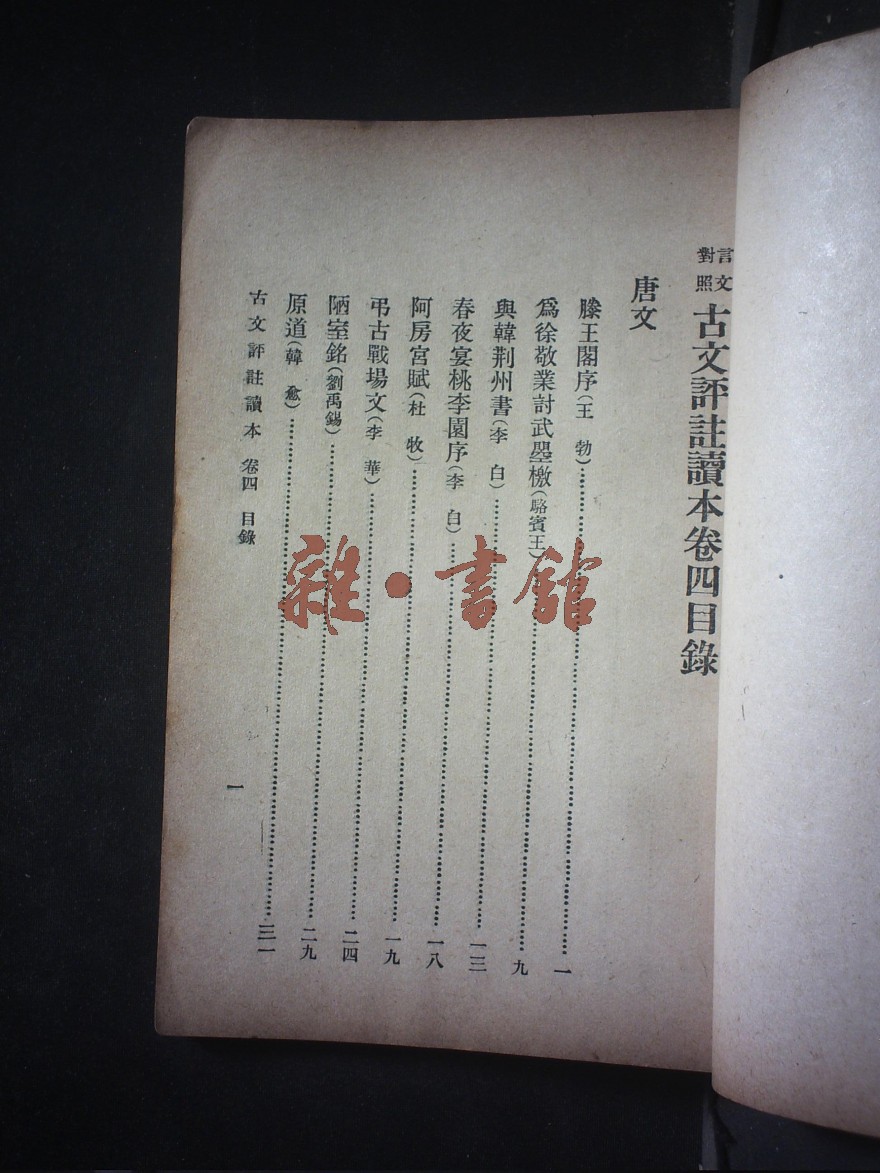 言文對照 古文評註讀本卷四目錄
唐文
滕王閣序(王勃)……一
爲徐敬業討武曌檄(駱賓王)……九
與韓荆州書(李白)……一三
春夜宴桃李園序(李白)……一八
阿房宮賦(杜牧)……一九
弔古戰場文(李華)……二四
陋室銘(劉禹錫)……二九
原道(韓愈)……三一
古文評註讀本 卷四 目錄
一
雜·書館